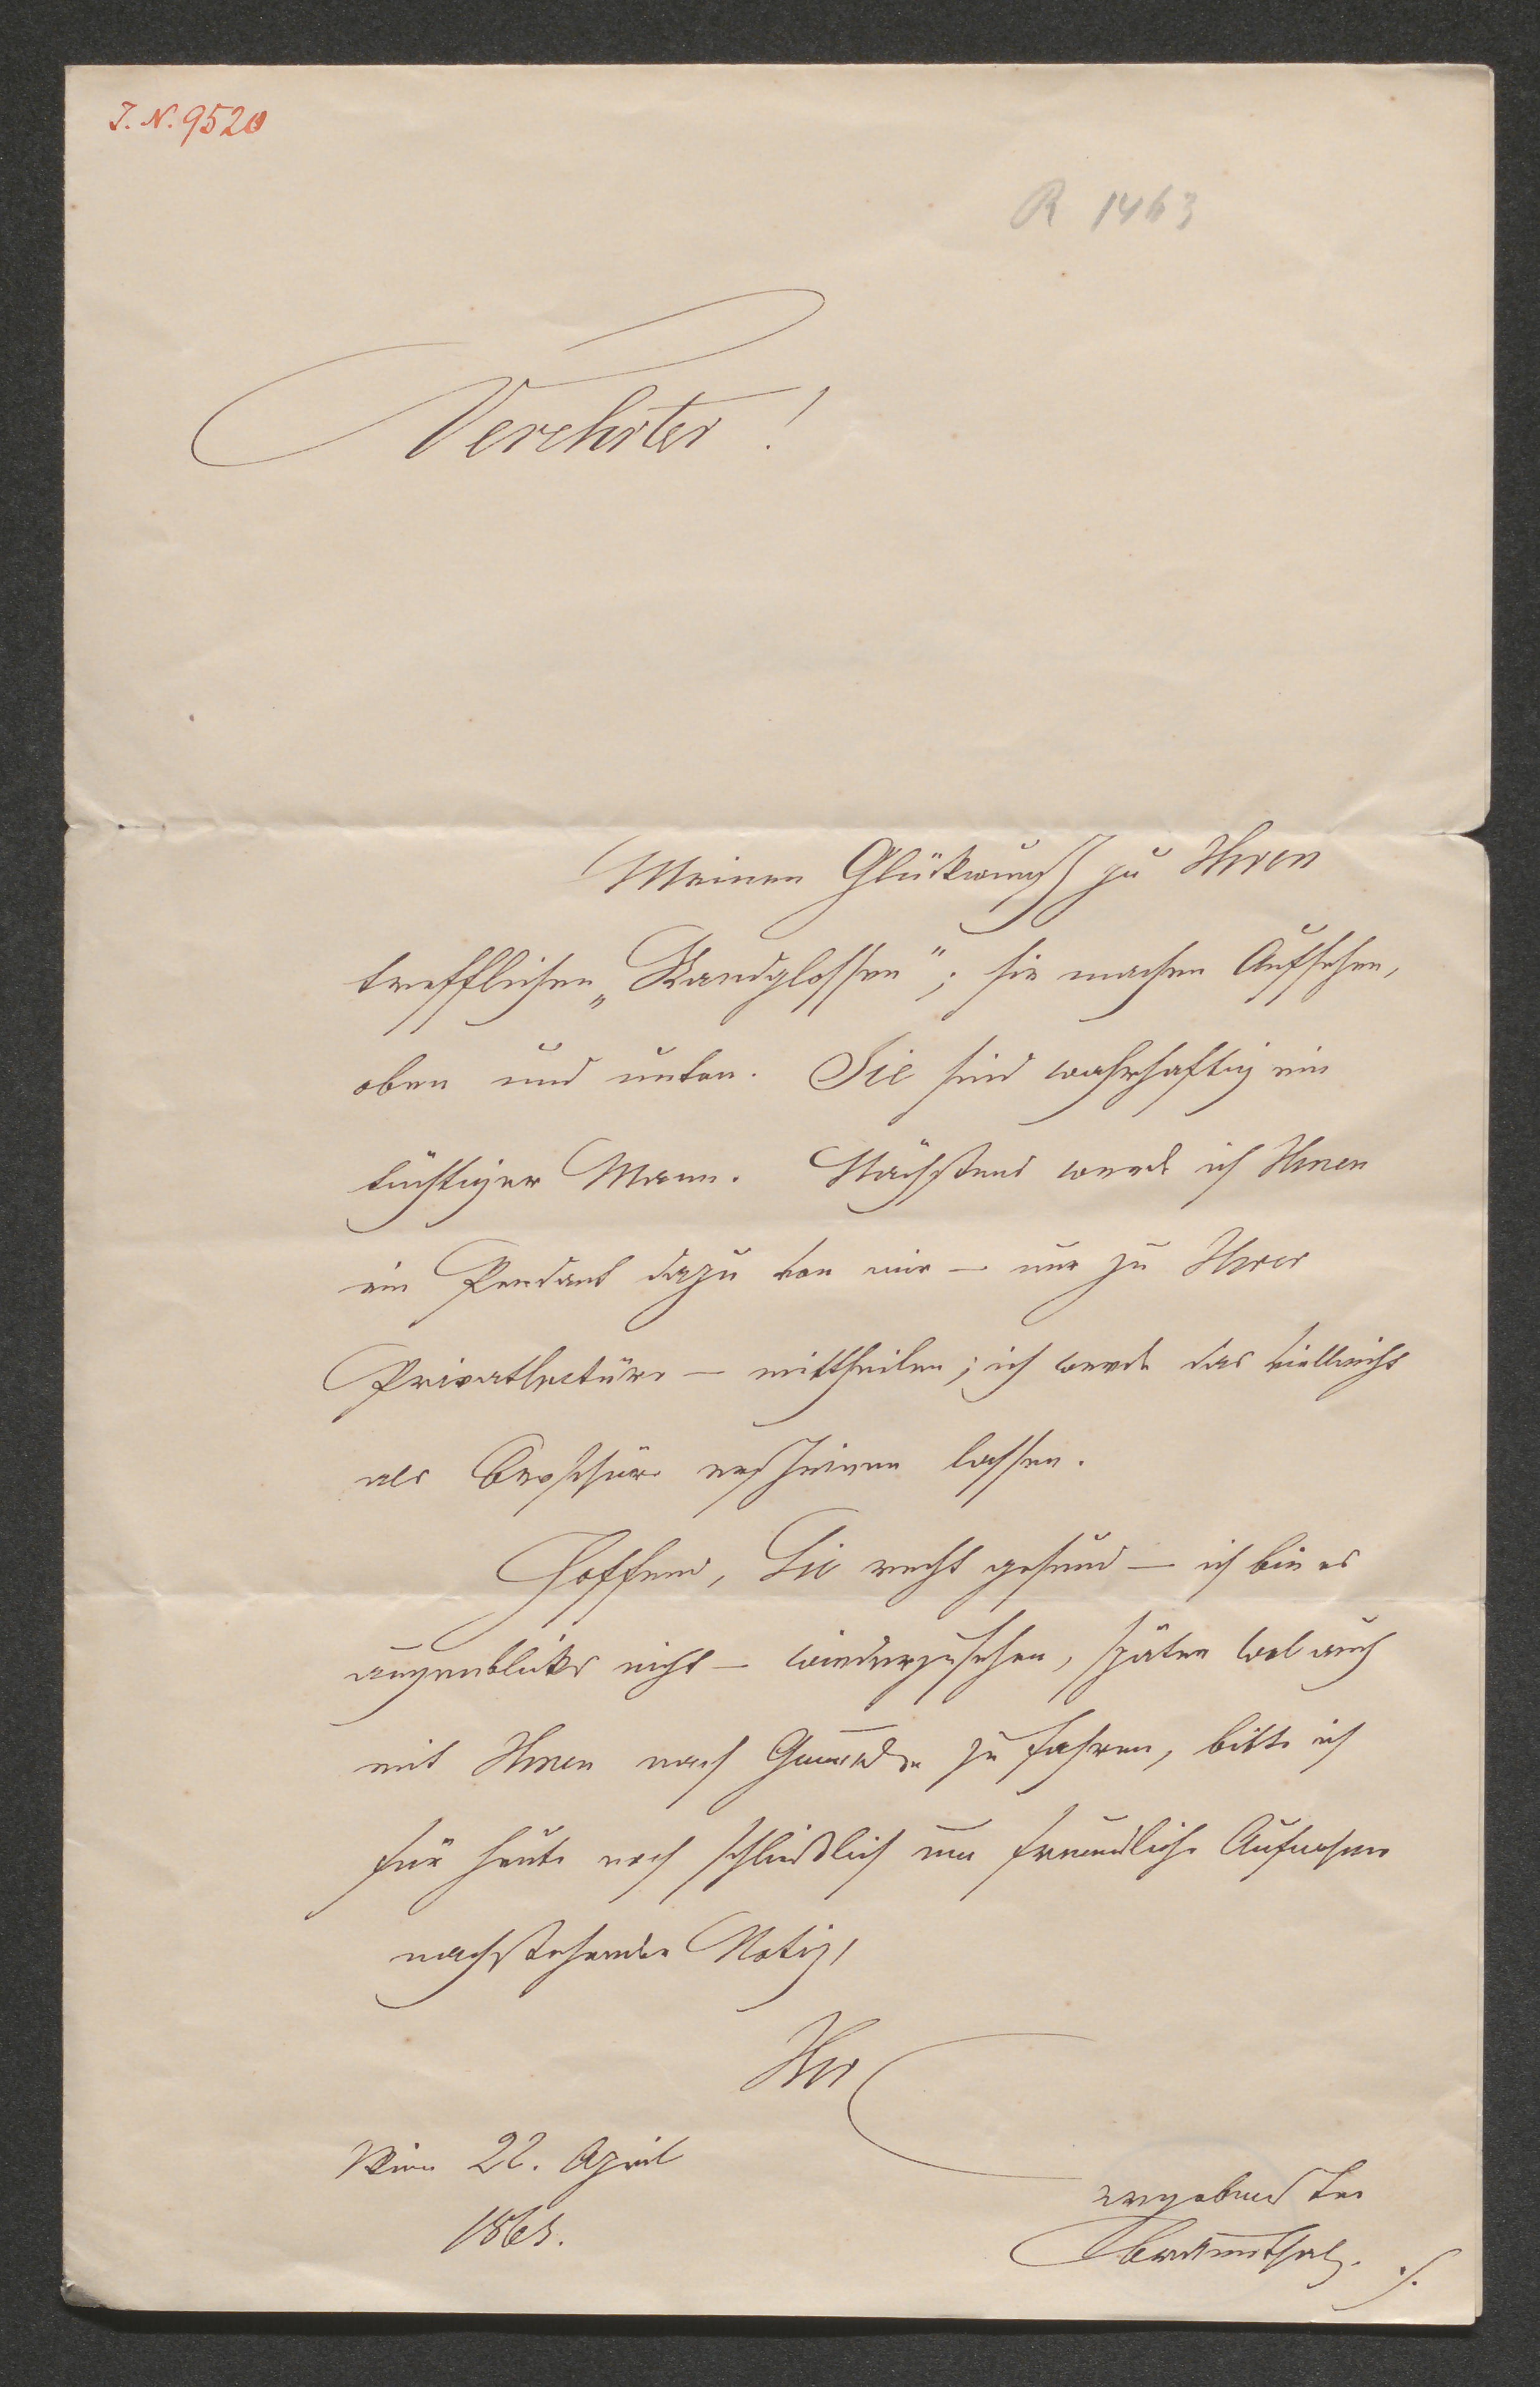 I. N. 9520
R 1463
Verehrter!
Meinen Glückwunsch zu Ihren
trefflichen „Randglossen"; sie machen Aufsehen,
oben und unten. Sie sind wahrhaftig ein
tüchtiger Mann. Nächstens werde ich Ihnen
ein Pendant dazu von mir — nur zu Ihrer
Privatlectüre — mittheilen; ich werde das vielleicht
als Broschüre erscheinen lassen.
Hoffend, Sie recht gesund — ich bin es
augenbliks nicht — wiederzusehen, später wol auch
mit Ihnen nach zu fahren, bitte ich
für heute noch schließlich um freundliche Aufnahme
nachstehender Notiz,
Ihr
Wien 22. April
186
ergebenster
./.